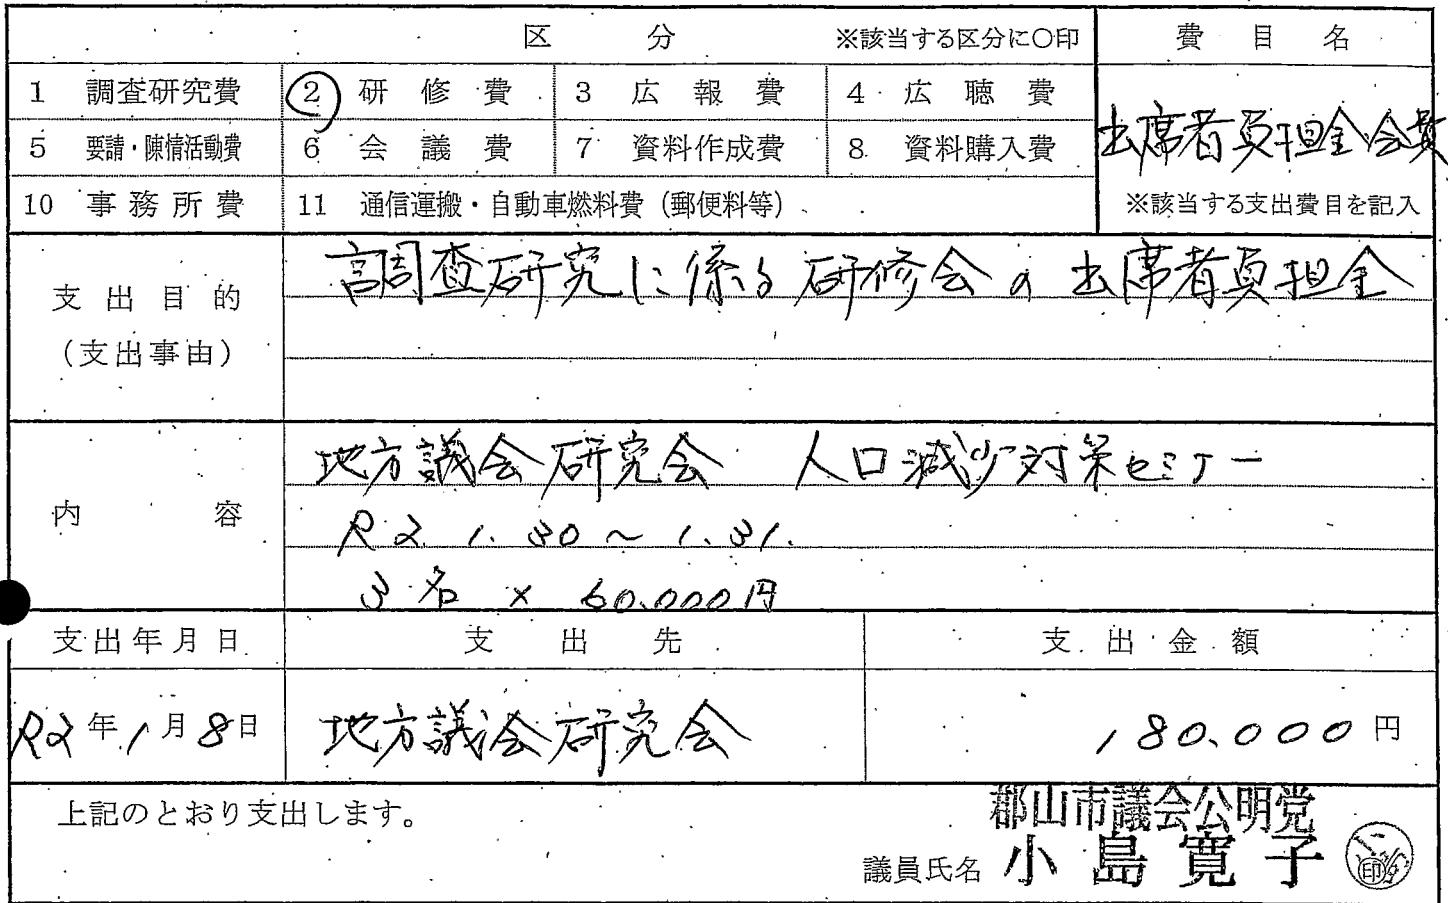 区 分 ※該当する区分に○印 費 目 名
1 調査研究費 ② 研 修 費 3 広 報 費 4 広 聴 費
出席者負担金会費
5 要請・陳情活動費 6 会 議 費 7 資料作成費 8 資料購入費
10 事 務 所 費 11 通信運搬・自動車燃料費（郵便料等） ※該当する支出費目を記入
支 出 目 的
（支出事由）
調査研究に係る研修会の出席者負担金
内 容
地方議会研究会 人口減少対策セミナー
R2 1.30～1.31.
3名 × 60.000円
支出年月日 支 出 先 支 出 金 額
R2年1月8日 地方議会研究会 180.000円
上記のとおり支出します。
郡山市議会公明党
議員氏名 小 島 寛 子 印